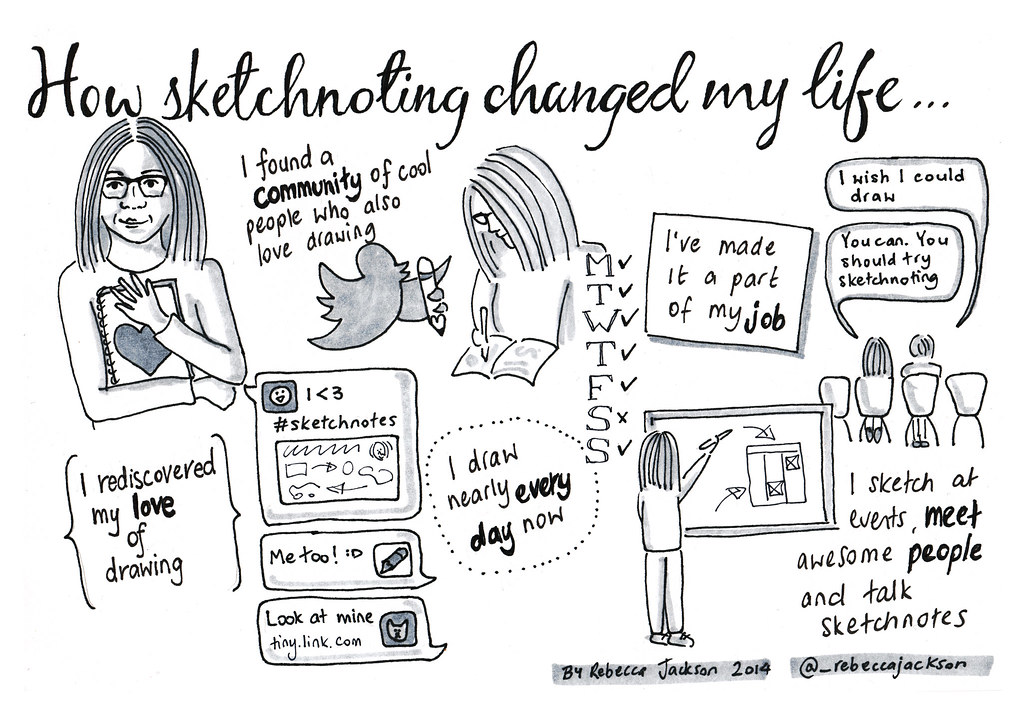 How sketchnoting changed my life...
I found a
community of cool
people who also
love drawing
I rediscovered
my love
of
drawing
I <3
#sketchnotes
Me too! :D
Look at mine
tiny.link.com
I draw
nearly every
day now
M ✓
T ✓
W ✓
T ✓
F ✓
S x
S ✓
I've made
it a part
of my job
I wish I could
draw
You can. You
should try
sketchnoting
I sketch at
events, meet
awesome people
and talk
sketchnotes
By Rebecca Jackson 2014
@_rebeccajackson